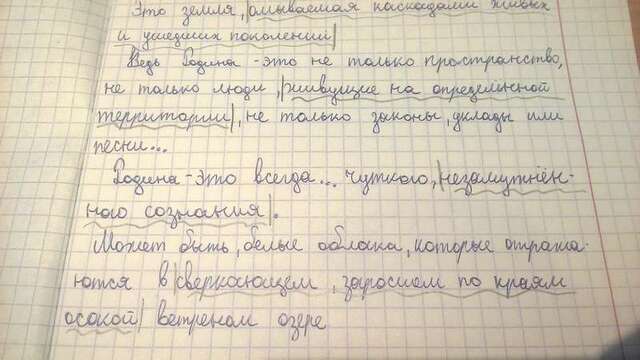 Это земля,|омываемая каскадами живых
и ушедших поколений|
Ведь Родина - это не только пространство,
не только люди,|живущие на определённой
территории|, не только законы, уклады или
песни...
Родина - это всегда... чуткого,|незамутнён-
ного сознания|.
Может быть, белые облака, которые отража-
ются в|сверкающем, заросшем по краям
осокой|ветреном озере